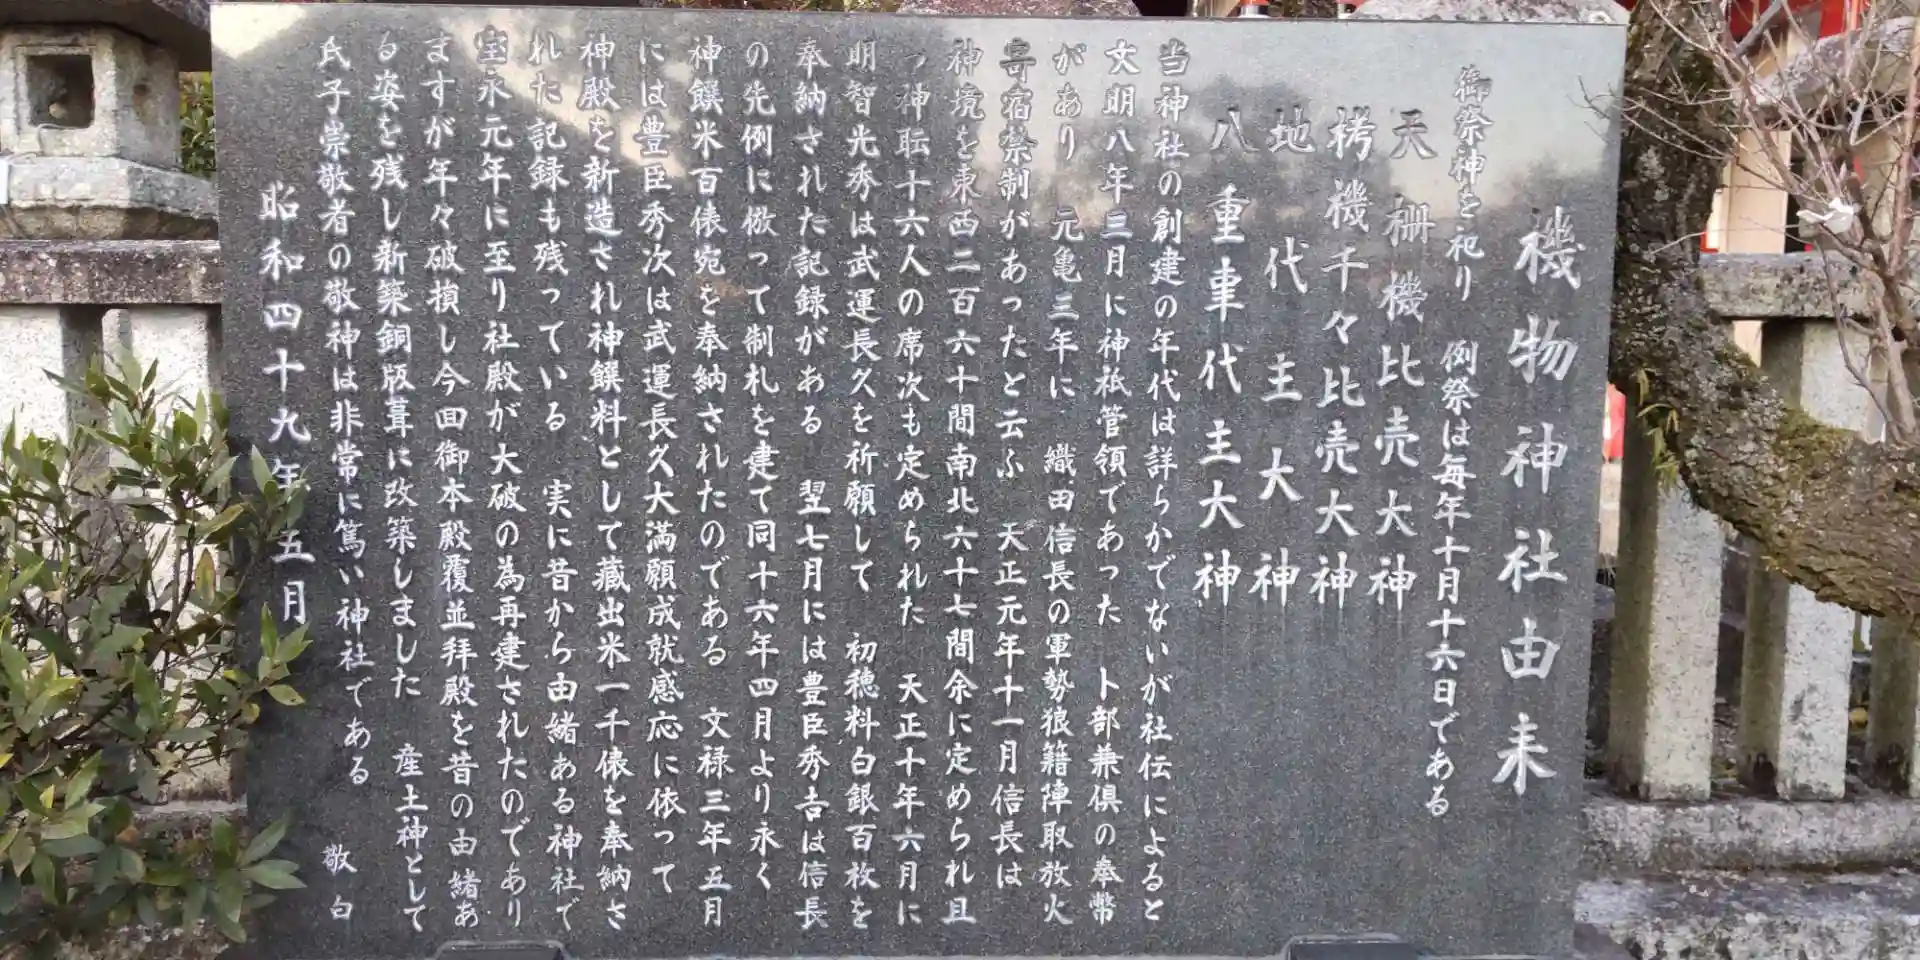 機物神社由来
御祭神を祀り 例祭は毎年十月十六日である
天棚機比売大神
栲機千々比売大神
地代主大神
八重事代主大神
当神社の創建の年代は詳らかでないが社伝によると
文明八年三月に神祇管領であった 卜部兼倶の奉幣
があり 元亀三年に 織田信長の軍勢狼籍陣取放火
寄宿禁制があったと云ふ 天正元年十一月信長は
神境を東西二百六十間南北六十七間余に定められ且
つ神転十六人の席次も定められた 天正十年六月に
明智光秀は武運長久を祈願して 初穂料白銀百枚を
奉納された記録がある 翌七月には豊臣秀吉は信長
の先例に倣って制札を建て同十六年四月より永く
神饌米百俵宛を奉納されたのである 文禄三年五月
には豊臣秀次は武運長久大満願成就感応に依って
神殿を新造され神饌料として藏出米一千俵を奉納さ
れた記録も残っている 実に昔から由緒ある神社で
宝永元年に至り社殿が大破の為再建されたのであり
ますが年々破損し今回御本殿覆並拝殿を昔の由緒あ
る姿を残し新築銅版葺に改築しました 産土神として
氏子崇敬者の敬神は非常に篤い神社である 敬白
昭和四十九年五月